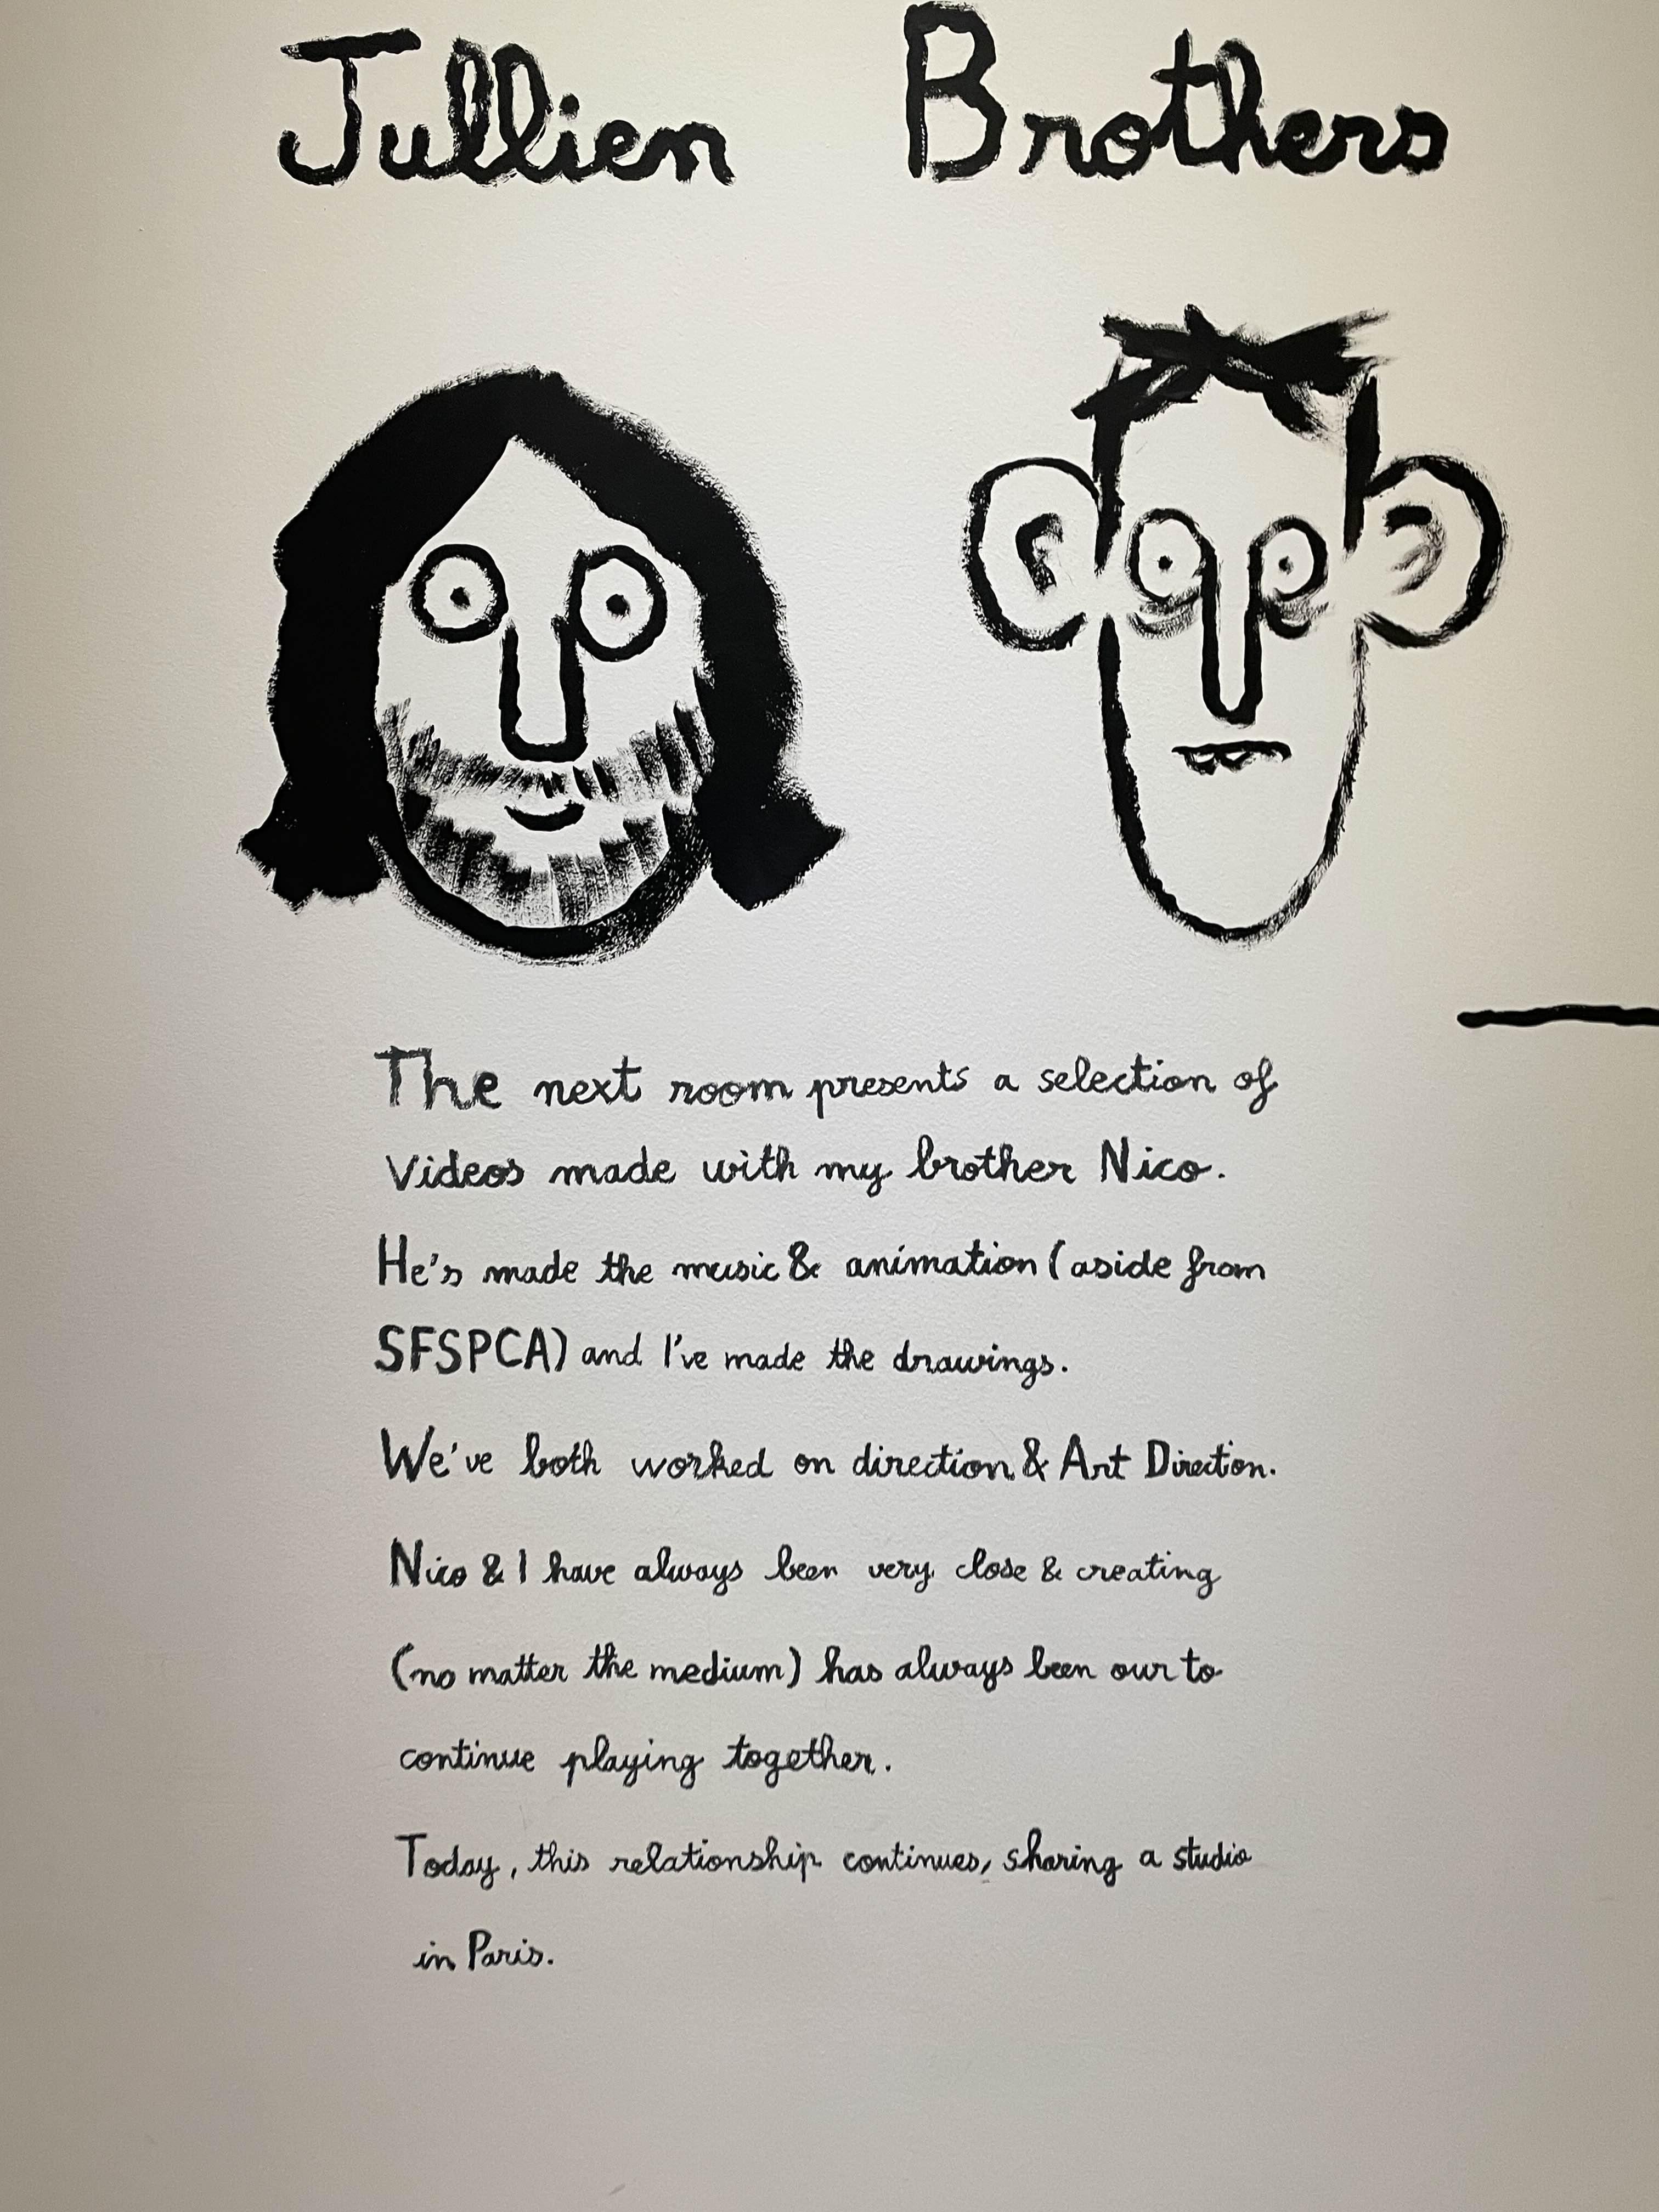 Jullien Brothers
The next room presents a selection of
Videos made with my brother Nico.
He's made the music & animation (aside from
SFSPCA) and I've made the drawings.
We've both worked on direction & Art Direction.
Nico & I have always been very close & creating
(no matter the medium) has always been our to
continue playing together.
Today, this relationship continues, sharing a studio
in Paris.